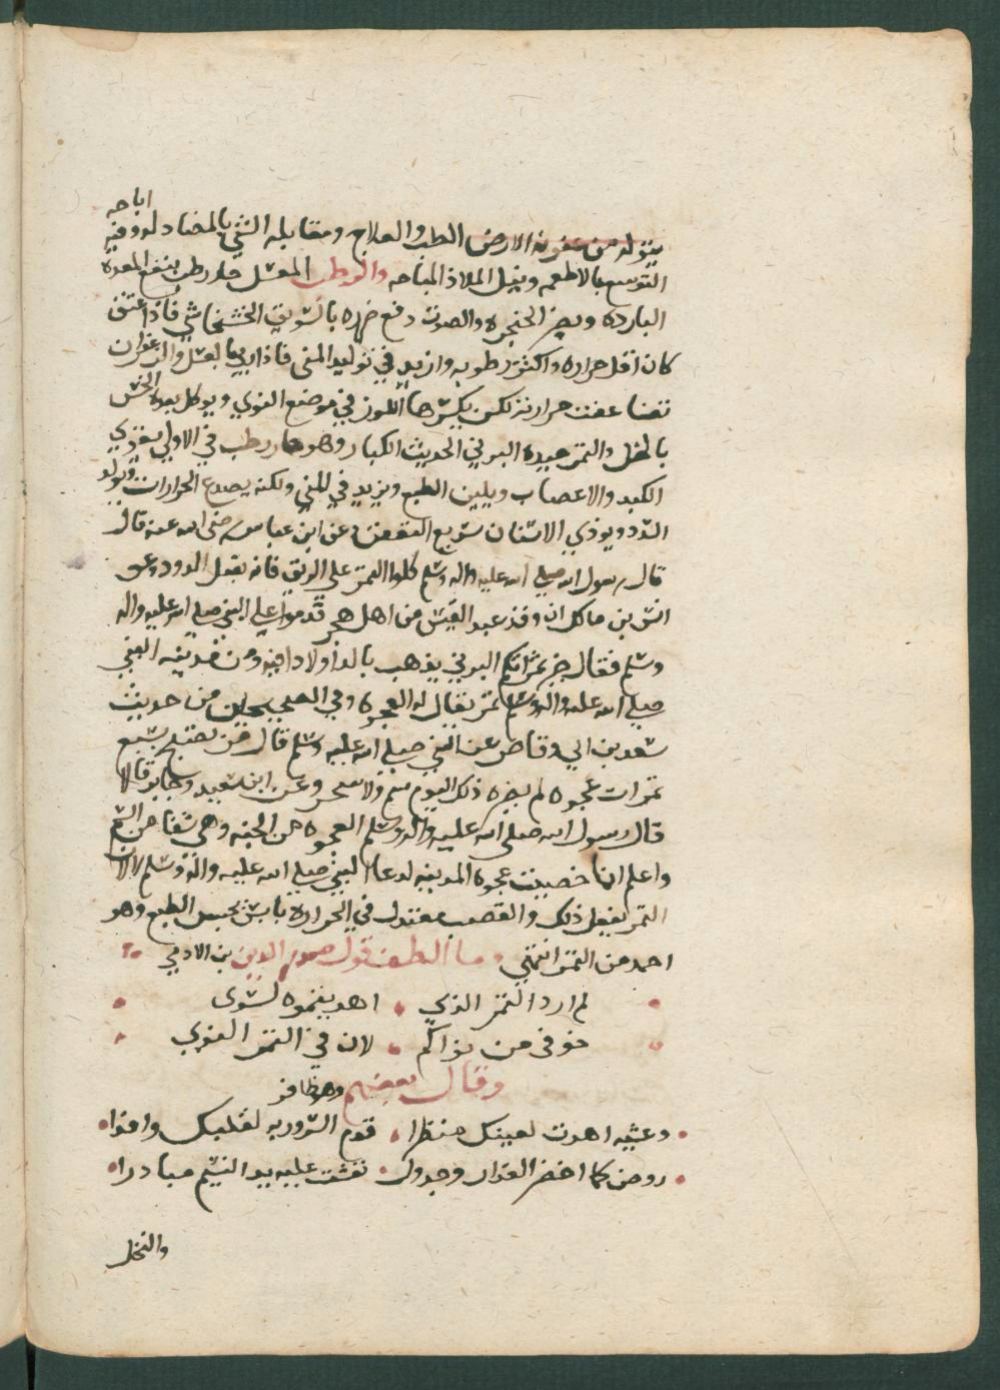 اباحه
يتولد من عفونة الارض الطب والعلاج ومقابله الشي بالمضاد له وفيه
التوسع بالاطعمه ونيل الملاذ المباحه والرطب المعسل حار رطب ينفع المعده
البارده ويضر الحنجره والصوت دفع ضرره بالسويق الخشخاشي فاذا عتق
كان اقل حراره واكثر رطوبه وازيد في توليد المني فاذا ربي بالعسل والزعفران
تضاعفت حرارته لكن يكسرها اللوز في موضع النوي ويوكل بعده الخس
بالخل والتمر جيده البرني الحديث الكبار وهو حار رطب في الاولي يقوي
الكبد والاعصاب ويلين الطبع ويزيد في المني ولكنه يصدع الحرارات ويولد
السدد ويوذي الاسنان سريع التعفن عن ابن عباس رضي الله عنه قال
قال رسول الله صلي الله عليه واله وسلم كلوا التمر علي الريق فانه يقتل الدود وعن
انس بن مالك ان وفد عبد القيس من اهل هجر قدموا علي النبي صلي الله عليه واله
وسلم فقال خير تمراتكم البرني يذهب بالداء ولا داء فيه ومن المدينه النبي
صلي الله عليه واله وسلم تمر يقال له العجوه وفي الصحيحين من حديث
سعد بن ابي وقاص عن النبي صلي الله عليه وسلم قال من تصبح بسبع
تمرات عجوه لم يضره ذلك اليوم سم ولا سحر وعن ابي سعيد وجابر قالا
قال رسول الله صلي الله عليه واله وسلم العجوه من الجنه وهي شفا من السم
واعلم انما خصيت عجوه المدينه لدعا النبي صلي الله عليه واله وسلم لا لان
التمر يفعل ذلك والقصب معتدل في الحراره يابس يحبس الطبع وهو
احمد من التمر انتهي ما الطف قول الدين بن الادمي
لم ارد التمر الذي اهديتموه لسوى
خوفي من نواكم لان في التمر النوي
وقال بعضهم وهو ظافر
وعشيه اهدت لعينك منظرا قدم السرور به لقلبك وافدا
روض كما اخضر العذار وجدول نقشت عليه يد النسيم مباردا
والنخل